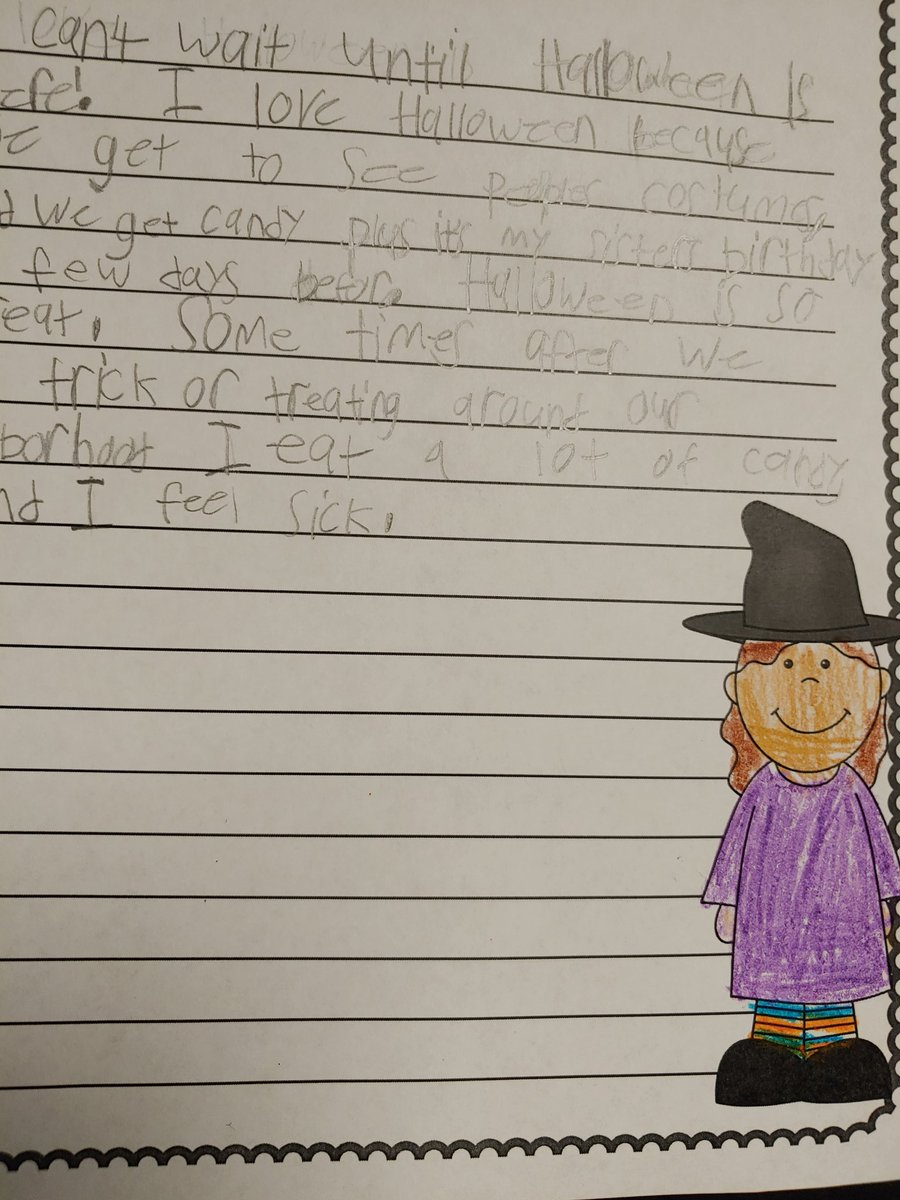 can't wait until Halloween is
I love Halloween because
get to see peoples costumes,
we get candy plus it's my sisters birthday
few days befor. Halloween is so
eat. Some times after we
trick or treating around our
borhoot I eat a lot of candy
nd I feel sick.